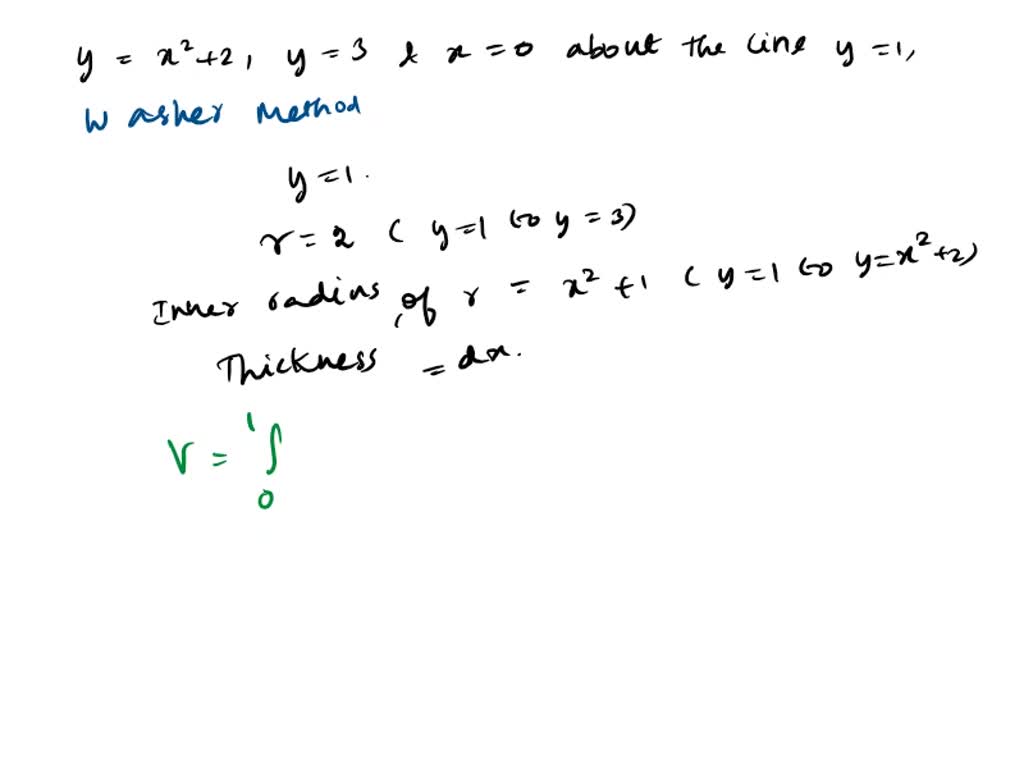 y = x²+2, y = 3 & x = 0 about the line y = 1,
Washer Method
y = 1.
r = 2 ( y = 1 to y = 3)
Inner radius, of r = x² + 1 ( y = 1 to y = x² + 2)
Thickness = dx.
V = ¹∫₀